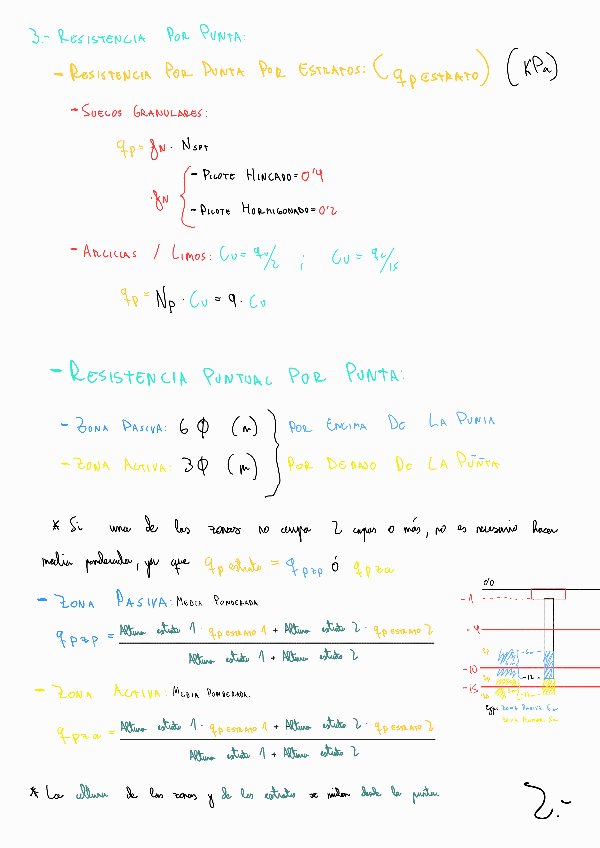 3.- RESISTENCIA POR PUNTA:
- RESISTENCIA POR PUNTA POR ESTRATOS: (qp ESTRATO) (KPa)
- SUELOS GRANULARES:
qp = fN · NSPT
fN { - PILOTE HINCADO = 0'4
- PILOTE HORMIGONADO = 0'2
- ARCILLAS / LIMOS: Cu = qu/2 ; Cu = qc/15
qp = Np · Cu = 9 · Cu
- RESISTENCIA PUNTUAL POR PUNTA:
- ZONA PASIVA: 6 Ø (m) } POR ENCIMA DE LA PUNTA
- ZONA ACTIVA: 3 Ø (m) } POR DEBAJO DE LA PUNTA
* Si una de las zonas no ocupa 2 capas o más, no es necesario hacer
media ponderada, ya que qp estrato = qpzp ó qpza
- ZONA PASIVA: MEDIA PONDERADA
qpzp = Altura estrato 1 · qp ESTRATO 1 + Altura estrato 2 · qp ESTRATO 2
Altura estrato 1 + Altura estrato 2
- ZONA ACTIVA: MEDIA PONDERADA.
qpza = Altura estrato 1 · qp ESTRATO 1 + Altura estrato 2 · qp ESTRATO 2
Altura estrato 1 + Altura estrato 2
* La altura de las zonas y de los estratos se miden desde la punta
0'0
-1
-4
-10
-12
-15
2.-